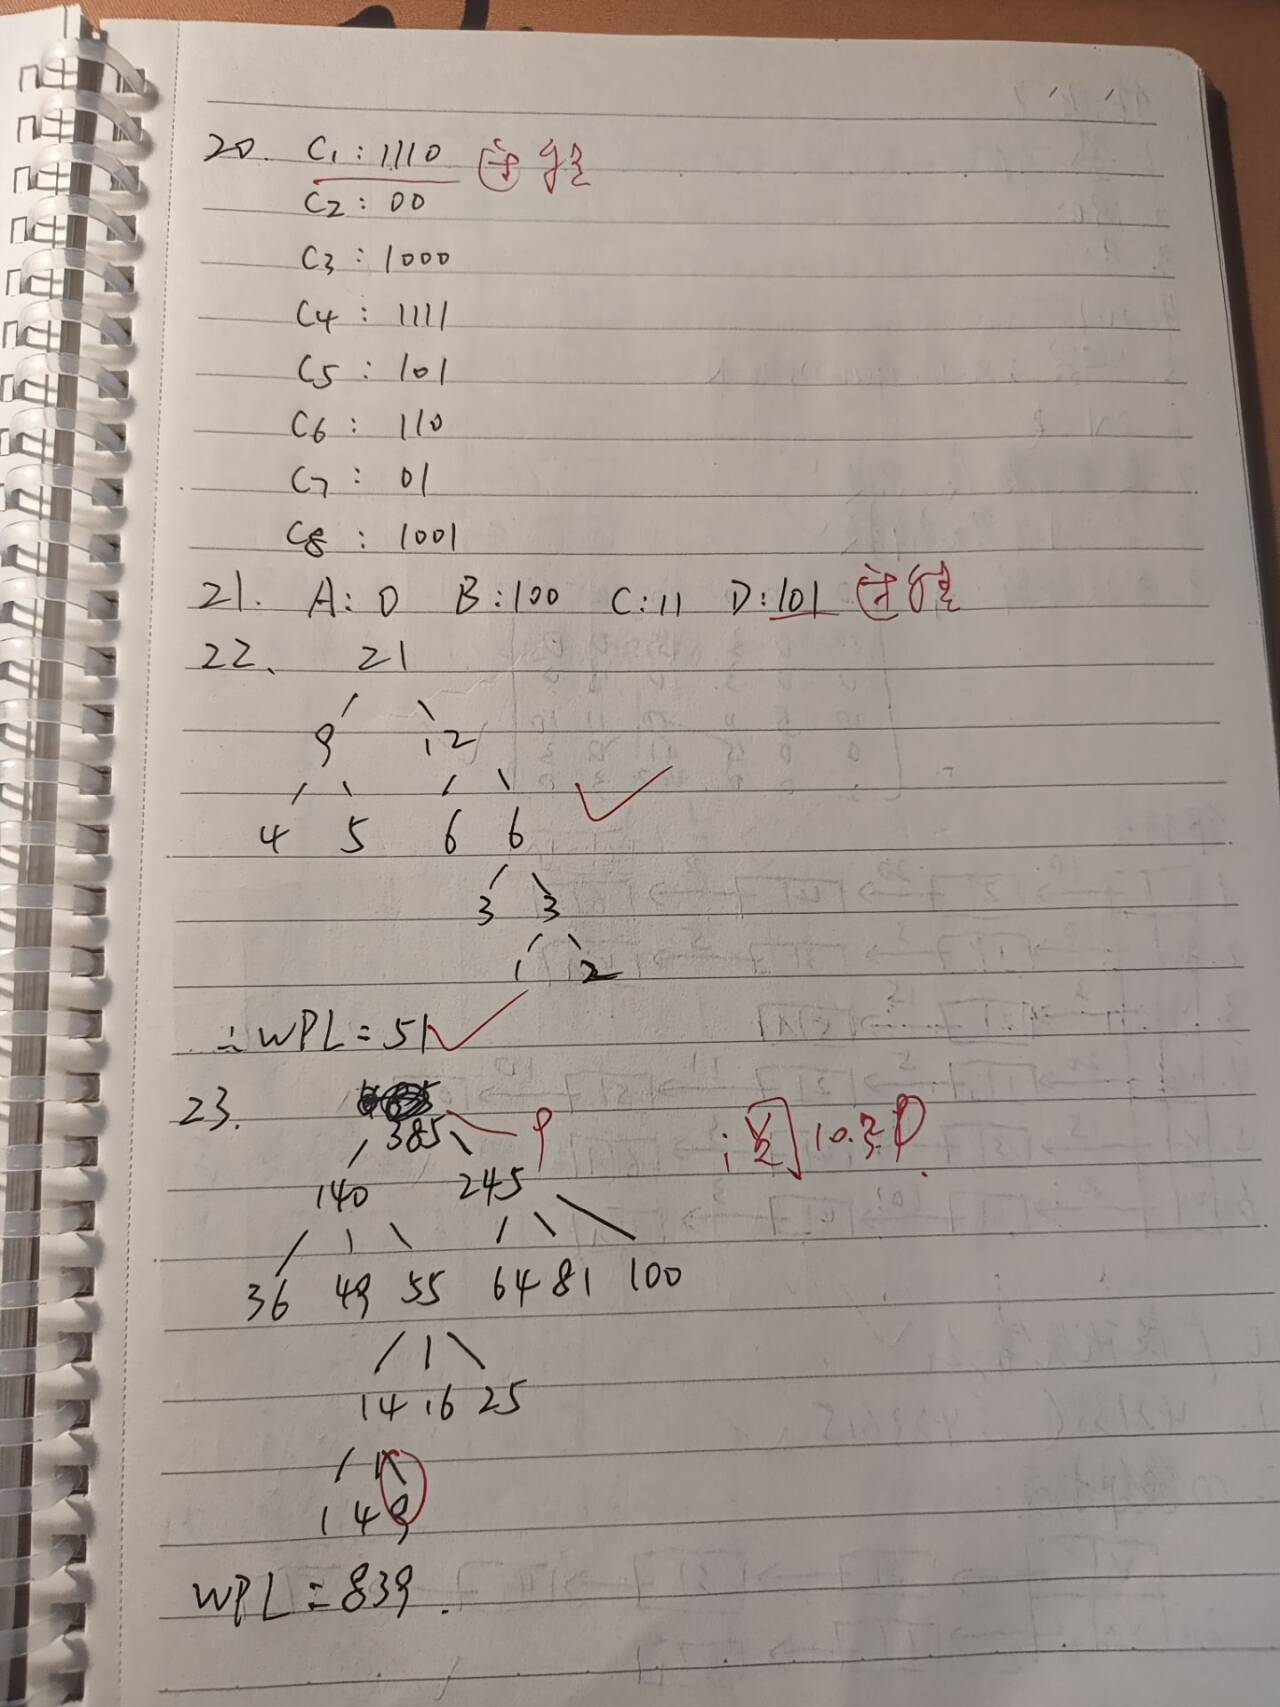 20. C1:1110
C2:00
C3:1000
C4:1111
C5:101
C6:110
C7:01
C8:1001
21. A:0 B:100 C:11 D:101
22. 21
9 12
4 5 6 6
3 3
1 2
∴WPL=51
23.
385 9
140 245
36 49 55 64 81 100
14 16 25
1 4 9
WPL=839.